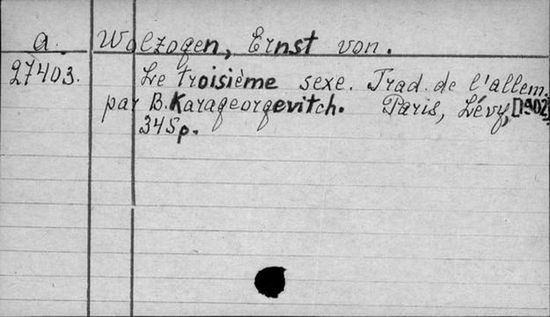 a. Wolzogen, Ernst von.
27403. Le troisième sexe. Trad. de l'allem.
par B. Karageorgevitch. Paris, Lévy, [1902]
345p.